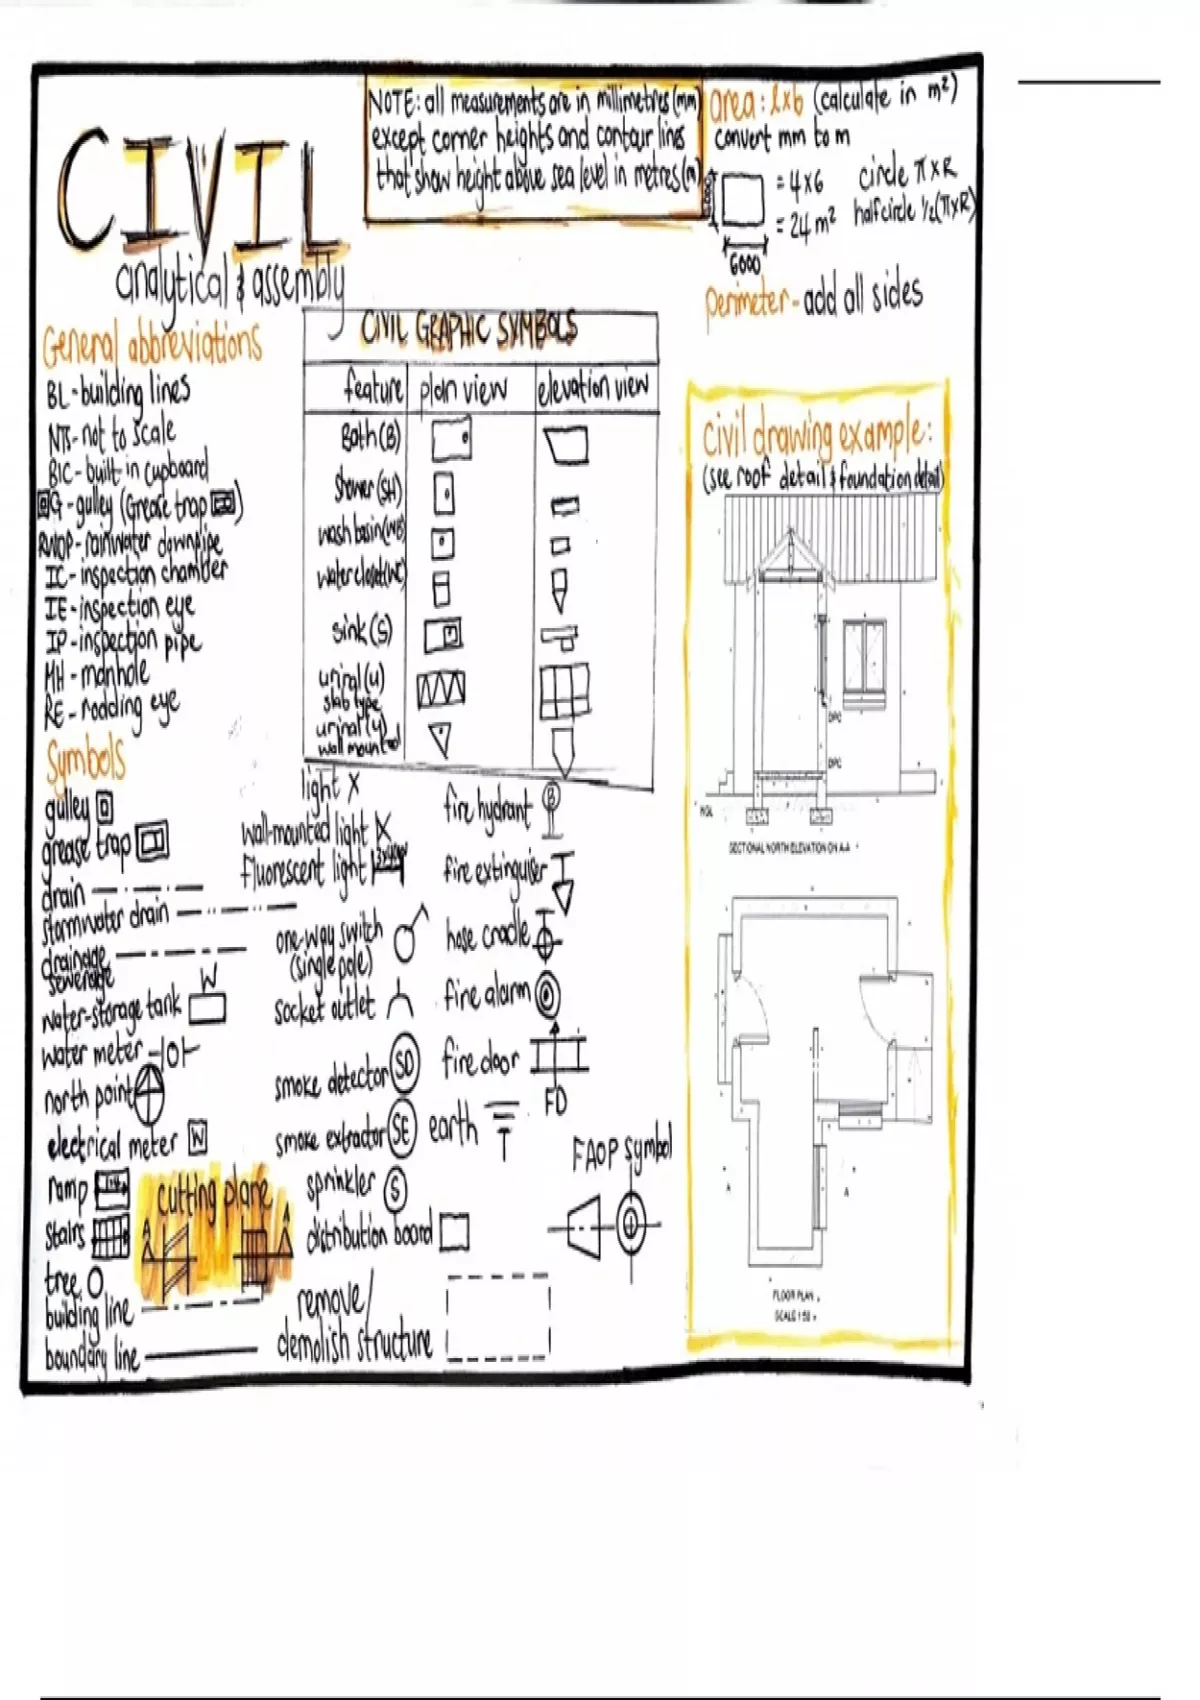 CIVIL
analytical & assembly
NOTE: all measurements are in millimetres (mm)
except corner heights and contour lines
that show height above sea level in metres (m)
area: l x b (calculate in m²)
convert mm to m
= 4x6
= 24 m²
6000
circle π x R
half circle ½(π x R)
perimeter - add all sides
General abbreviations
BL - building lines
NTS - not to scale
BIC - built in cupboard
G - gulley (Grease trap)
RWDP - rainwater downpipe
IC - inspection chamber
IE - inspection eye
IP - inspection pipe
MH - manhole
RE - rodding eye
CIVIL GRAPHIC SYMBOLS
feature plan view elevation view
Bath (B)
Shower (SH)
wash basin (WB)
water closet (WC)
sink (S)
urinal (u)
slab type
urinal (u)
wall mounted
Symbols
gulley
grease trap
drain
stormwater drain
drainage
sewerage
water-storage tank W
water meter
north point
electrical meter W
ramp
stairs
tree
building line
boundary line
cutting plane
A A
light X
wall-mounted light
Fluorescent light
one-way switch
(single pole)
socket outlet
smoke detector SD
smoke extractor SE
sprinkler S
distribution board
remove/
demolish structure
fire hydrant
fire extinguiser
hose cradle
fire alarm
fire door
FD
earth
FAOP symbol
civil drawing example:
(see roof detail & foundation detail)
DPC
DPC
NGL
SECTIONAL NORTH ELEVATION ON A-A
A A
FLOOR PLAN
SCALE 1:50